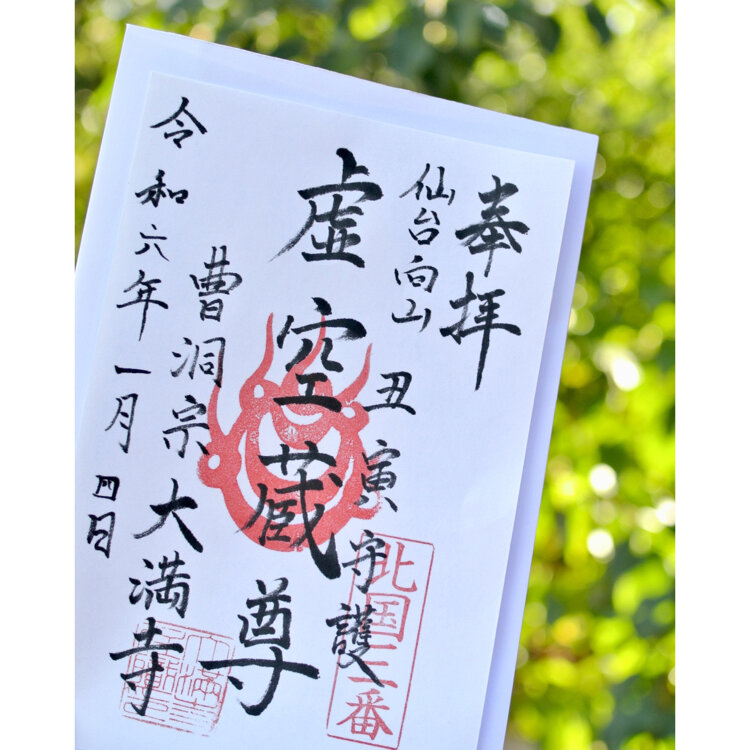 奉拝
仙台向山
丑寅守護
北国三番
虚空蔵尊
曹洞宗大満寺
令和六年一月四日